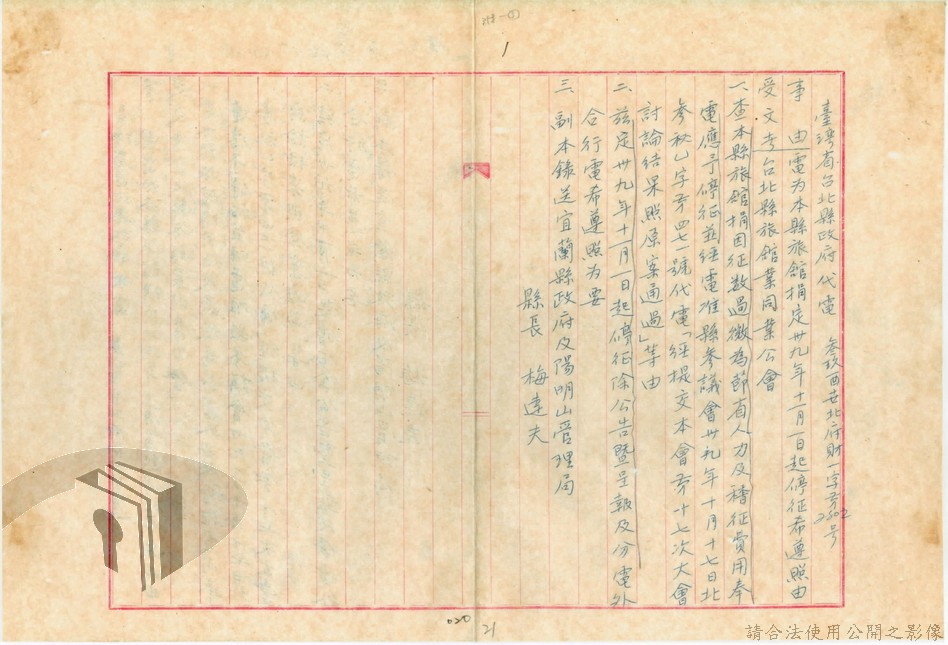 1
臺灣省台北縣政府代電　參玖酉世北府財一字第2502号
事　由　電为本縣旅館捐定卅九年十一月一日起停征希遵照由
受文者　台北縣旅館業同業公會
一、查本縣旅館捐因征数過微為節省人力及稽征費用奉
電應予停征並経電准縣參議會卅九年十月十七日北
參秘乙字第四七一號代電「経提交本會第十七次大會
討論結果照原案通過」等由
二、茲定卅九年十一月一日起停征除公告暨呈報及分電外
合行電希遵照为要
三、副本錄送宜蘭縣政府及陽明山管理局
縣長　梅達夫
020
21
請合法使用公開之影像